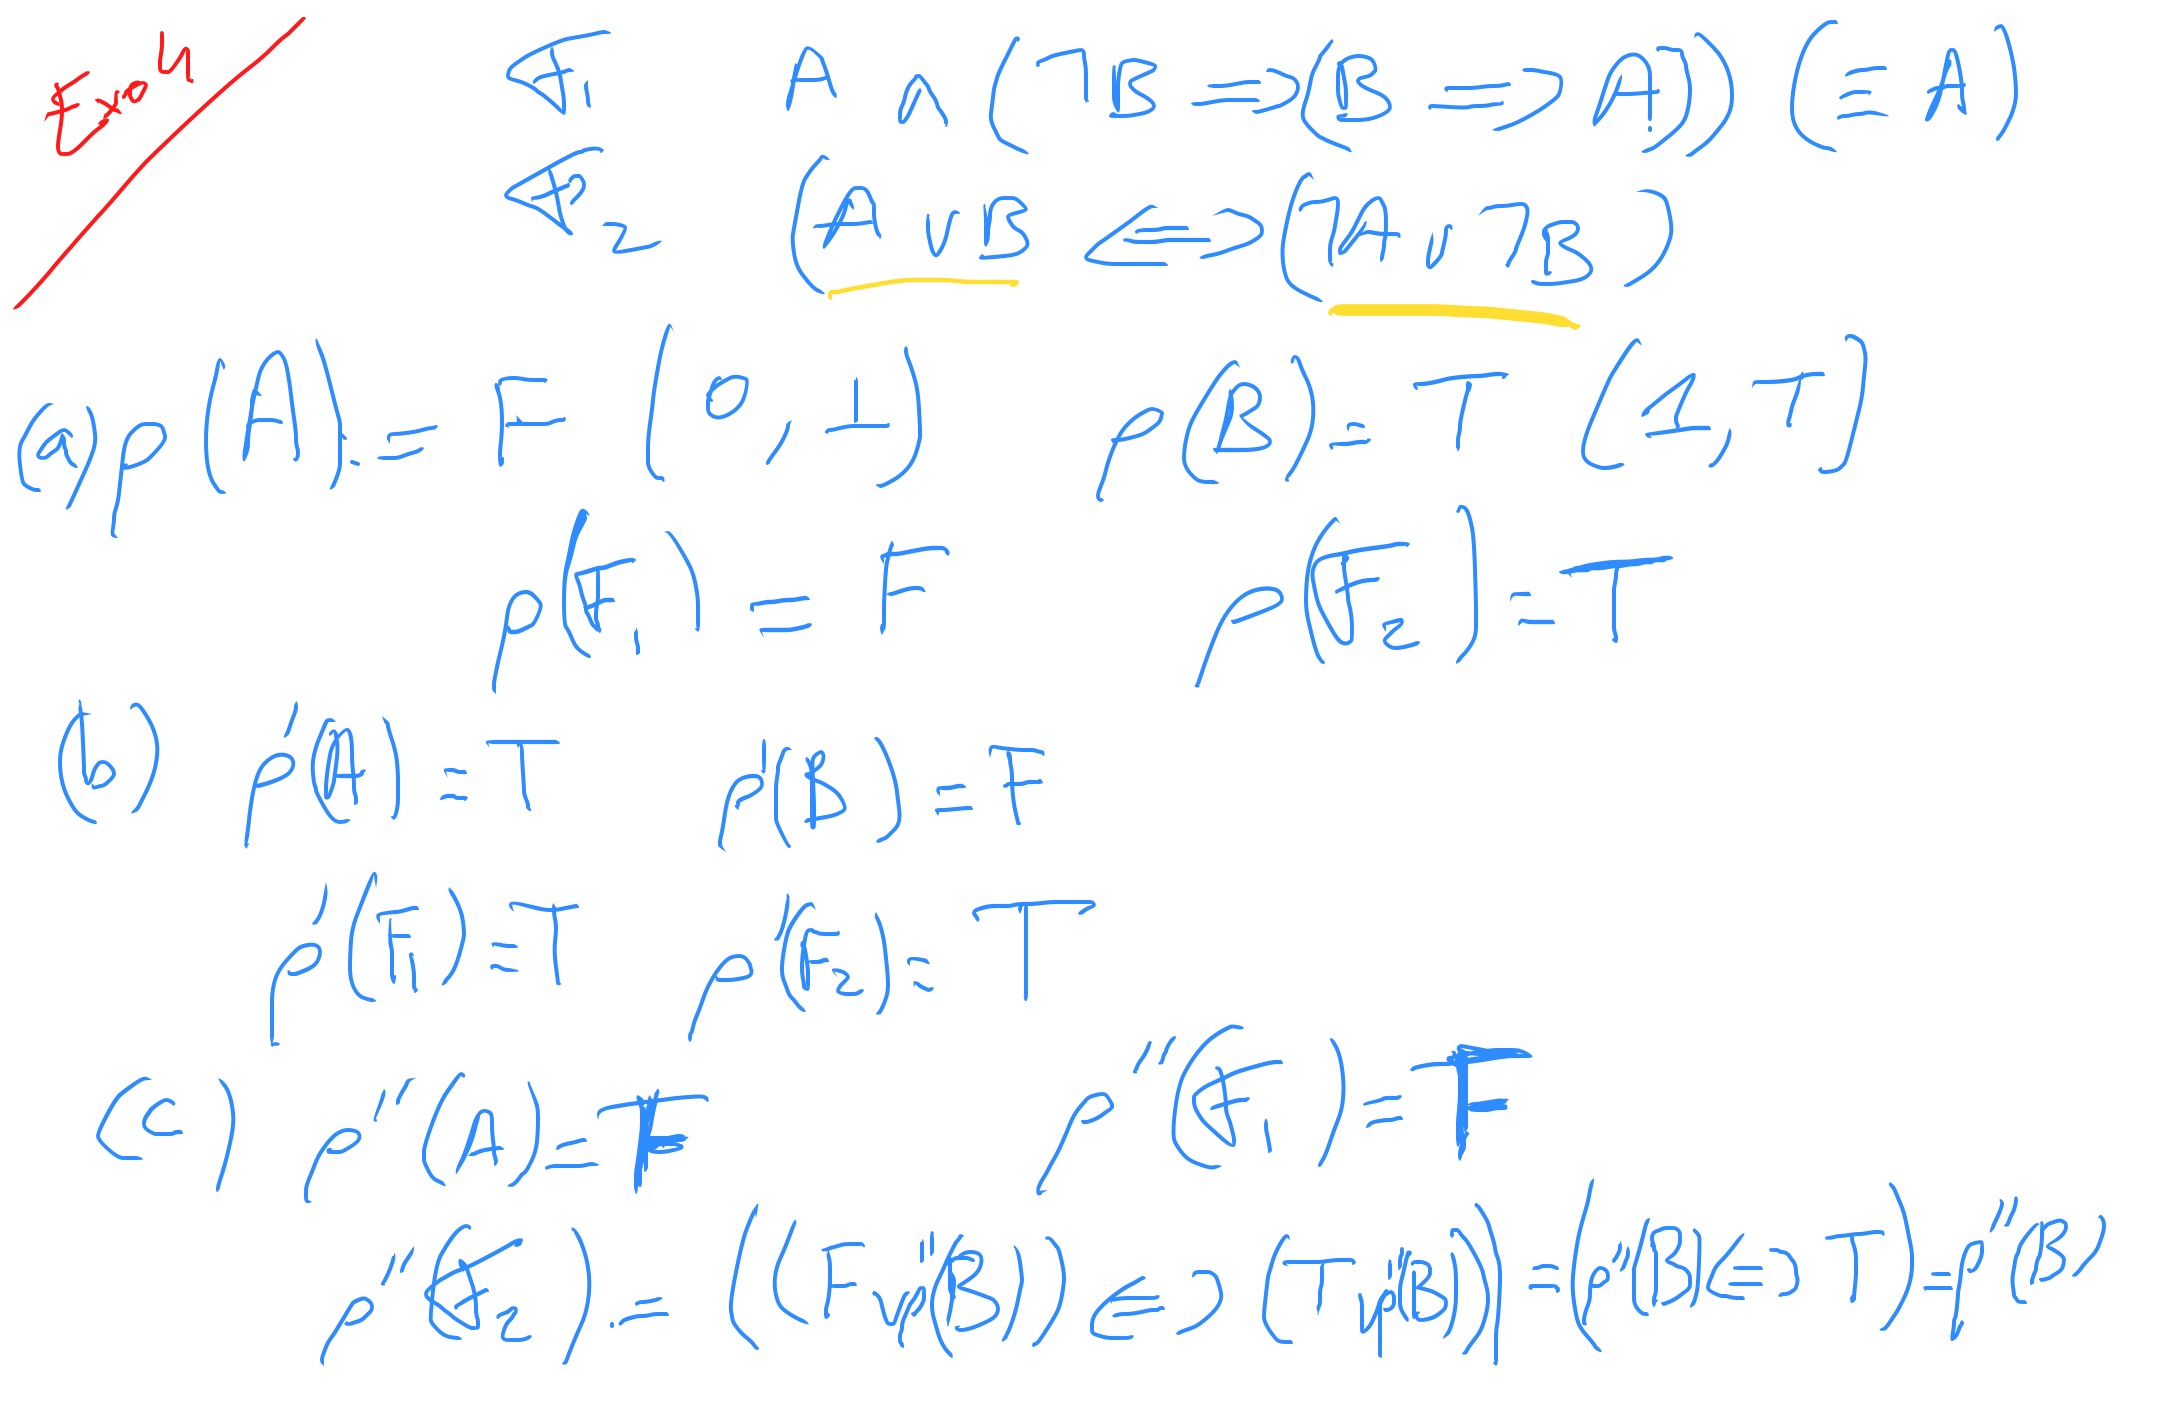 Exo 4
F₁ A ∧ (¬B ⇒ (B ⇒ A)) (≡ A)
F₂ (A ∨ B ⇔ (¬A ∨ ¬B)
(a) ρ(A) := F (0, ⊥) ρ(B) = T (1, T)
ρ(F₁) = F ρ(F₂) = T
(b) ρ'(A) = T ρ'(B) = F
ρ'(F₁) = T ρ'(F₂) = T
(c) ρ''(A) = F ρ''(F₁) = F
ρ''(F₂) := ((F ∨ ρ''(B)) ⇔ (T ∨ ρ''(B))) = (ρ''(B) ⇔ T) = ρ''(B)